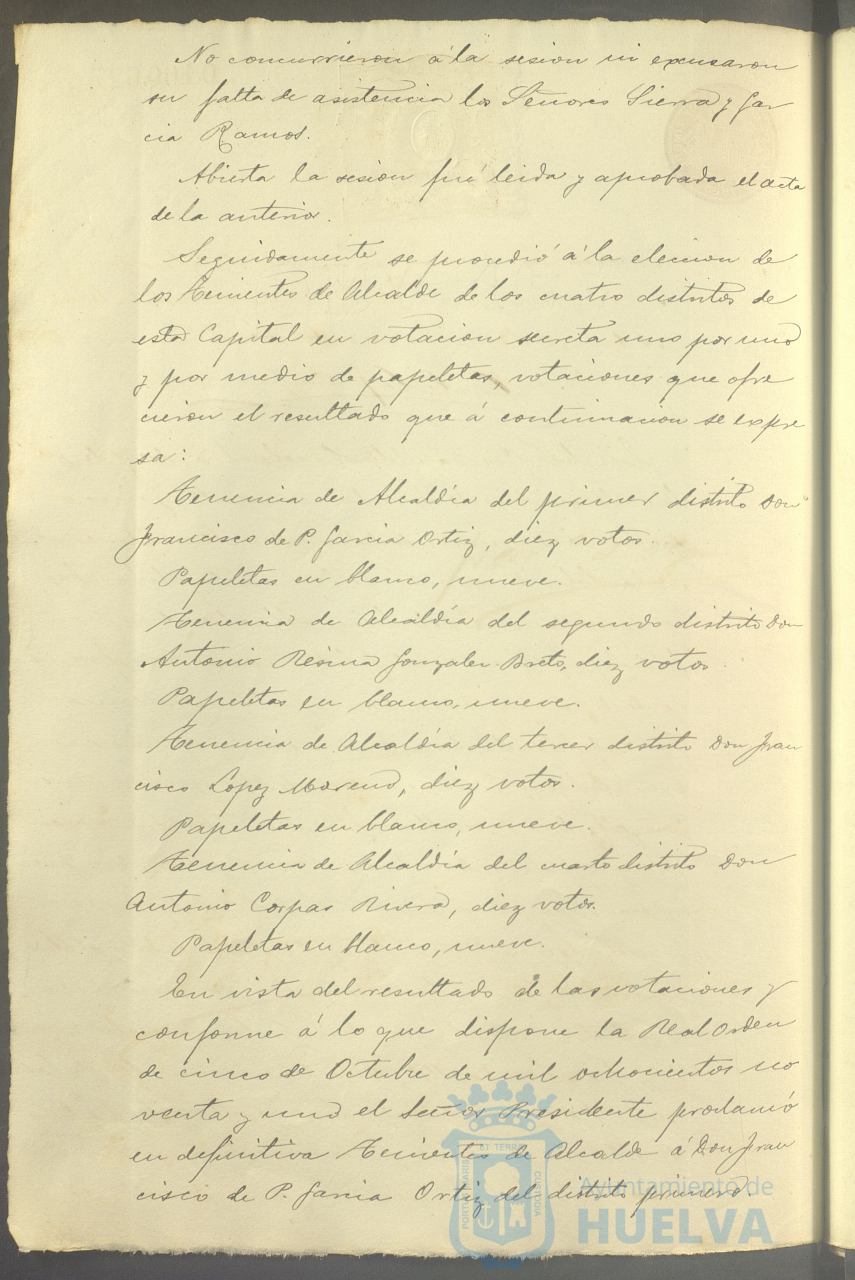 No concurrieron á la sesion ni excusaron
su falta de asistencia los Señores Sierra y Gar
cia Ramos.
Abierta la sesion fué leida y aprobada el acta
de la anterior.
Seguidamente se procedió á la eleccion de
los Tenientes de Alcalde de los cuatro distritos de
esta Capital en votacion secreta uno por uno
y por medio de papeletas, votaciones que ofre
cieron el resultado que á continuacion se expre
sa:
Tenencia de Alcaldía del primer distrito Don
Francisco de P. Garcia Ortiz, diez votos.
Papeletas en blanco, nueve.
Tenencia de Alcaldía del segundo distrito Don
Antonio Gonzalez diez votos.
Papeletas en blanco, nueve.
Tenencia de Alcaldía del tercer distrito Don Fran
cisco Lopez Moreno, diez votos.
Papeletas en blanco, nueve.
Tenencia de Alcaldía del cuarto distrito Don
Antonio Corpas Rivera, diez votos.
Papeletas en blanco, nueve.
En vista del resultado de las votaciones y
conforme á lo que dispone la Real Orden
de cinco de Octubre de mil ochocientos no
venta y uno el Señor Presidente proclamó
en definitiva Tenientes de Alcalde á Don Fran
cisco de P. Garcia Ortiz del distrito primero.
PORTUS MARIS ET TERRAE CUSTODIA
Ayuntamiento de
HUELVA